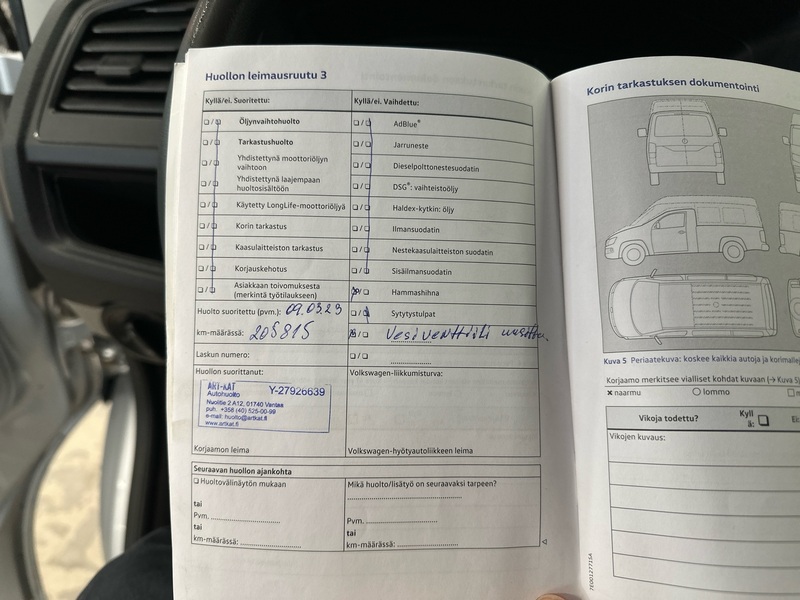 Huollon leimausruutu 3
Kyllä/ei. Suoritettu:
Öljynvaihtohuolto
Tarkastushuolto
Yhdistettynä moottoriöljyn
vaihtoon
Yhdistettynä laajempaan
huoltosisältöön
Käytetty LongLife-moottoriöljyä
Korin tarkastus
Kaasulaitteiston tarkastus
Korjauskehotus
Asiakkaan toivomuksesta
(merkintä työtilaukseen)
Huolto suoritettu (pvm.): 09.03.23
km-määrässä: 205815
Laskun numero:
Huollon suorittanut:
ART-KAT
Autohuolto Y-27926639
Nuolitie 2 A12, 01740 Vantaa
puh. +358 (40) 525-00-99
e-mail: huolto@artkat.fi
www.artkat.fi
Korjaamon leima
Kyllä/ei. Vaihdettu:
AdBlue®
Jarruneste
Dieselpolttonestesuodatin
DSG®: vaihteistoöljy
Haldex-kytkin: öljy
Ilmansuodatin
Nestekaasulaitteiston suodatin
Sisäilmansuodatin
Hammashihna
Sytytystulpat
Vesiventtiili
Volkswagen-liikkumisturva:
Volkswagen-hyötyautoliikkeen leima
Seuraavan huollon ajankohta
Huoltovälinäytön mukaan
tai
Pvm.
tai
km-määrässä:
Mikä huolto/lisätyö on seuraavaksi tarpeen?
Pvm.
tai
km-määrässä:
Korin tarkastuksen dokumentointi
Kuva 5 Periaatekuva: koskee kaikkia autoja ja
Korjaamo merkitsee vialliset kohdat kuvaan (→ Kuva 5)
naarmu lommo
Vikoja todettu? Kyll
ä: Ei:
Vikojen kuvaus:
7E0012771SA